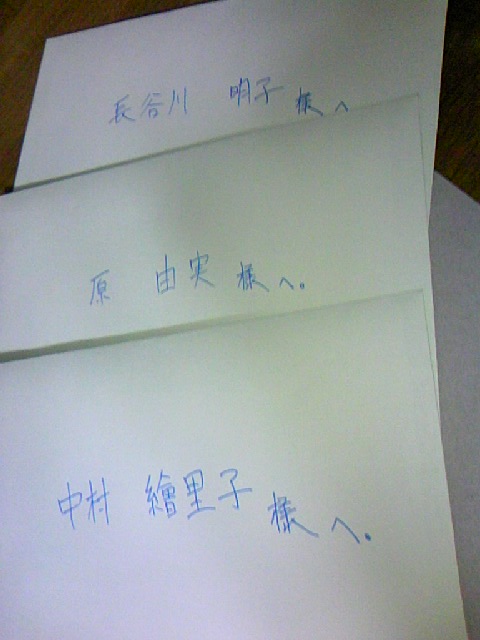 長谷川 明子 様へ
原 由実 様へ。
中村 繪里子 様へ。